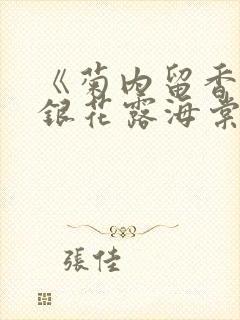 《菊内留香
銀花露海棠
張佳